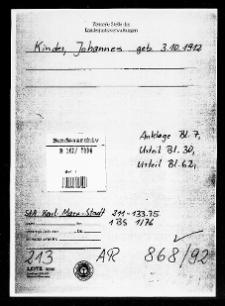 Zentrale Stelle der
Landesjustizverwaltungen
Kinder, Johannes geb. 3.10.1912
Bundesarchiv
B 162/
Anklage Bl. 7,
Urteil Bl. 30,
Urteil Bl. 62,
StA. Karl-Marx-Stadt 211-133.75
1 BS 1/76
213 AR 868/92
LEITZ